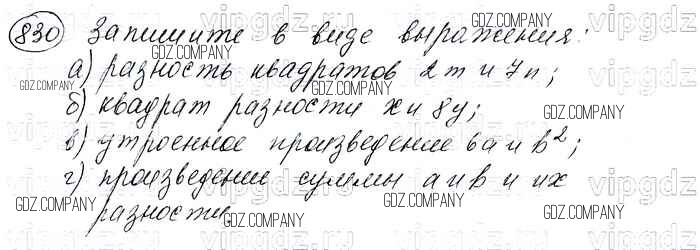 830 Запишите в виде выражения:
а) разность квадратов 2m и 7n;
б) квадрат разности x и 8y;
в) утроенное произведение 6a и b²;
г) произведение суммы a и b и их
разности.
GDZ.COMPANY
vipgdz